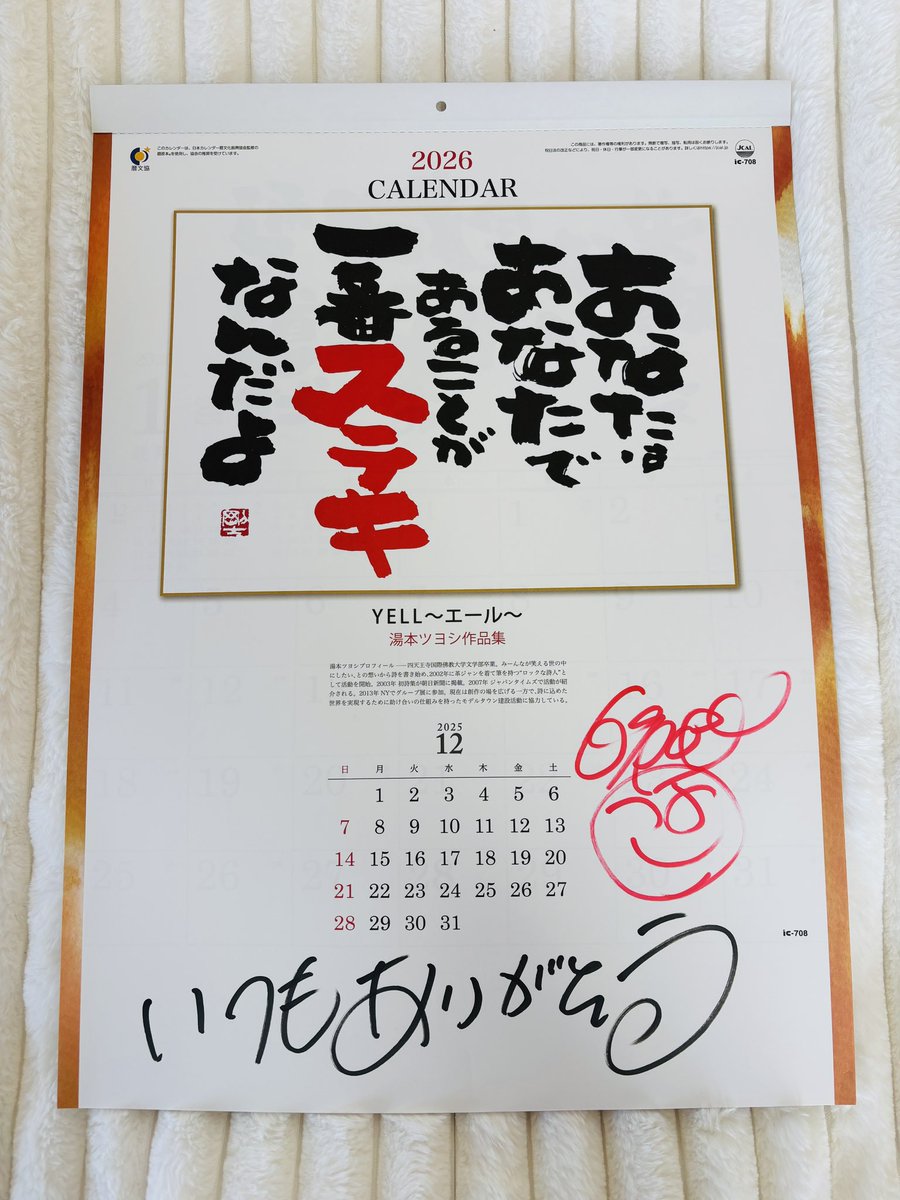 このカレンダーは、日本カレンダー暦文化振興協会監修の
暦原本を使用し、協会の推奨を受けています。
暦文協
この商品には、著作権等の権利があります。無断で複写、描写、転用は固くお断りします。
祝日法の改正などにより、祝日・休日・行事が一部変更になることがあります。詳しくはhttps://jcal.jp
JCAL
ic-708
2026
CALENDAR
あなたは
あなたで
あることが
一番ステキ
なんだよ
YELL〜エール〜
湯本ツヨシ作品集
湯本ツヨシプロフィール――四天王寺国際佛教大学文学部卒業。みーんなが笑える世の中
にしたい、との想いから詩を書き始め、2002年に革ジャンを着て筆を持つ“ロックな詩人”と
して活動を開始。2003年 初詩集が朝日新聞に掲載。2007年 ジャパンタイムズで活動が紹
介される。2013年 NYでグループ展に参加。現在は創作の場を広げる一方で、詩に込めた
世界を実現するために助け合いの仕組みを持ったモデルタウン建設活動に協力している。
2025
12
日 月 火 水 木 金 土
1 2 3 4 5 6
7 8 9 10 11 12 13
14 15 16 17 18 19 20
21 22 23 24 25 26 27
28 29 30 31
ic-708
いつもありがとう